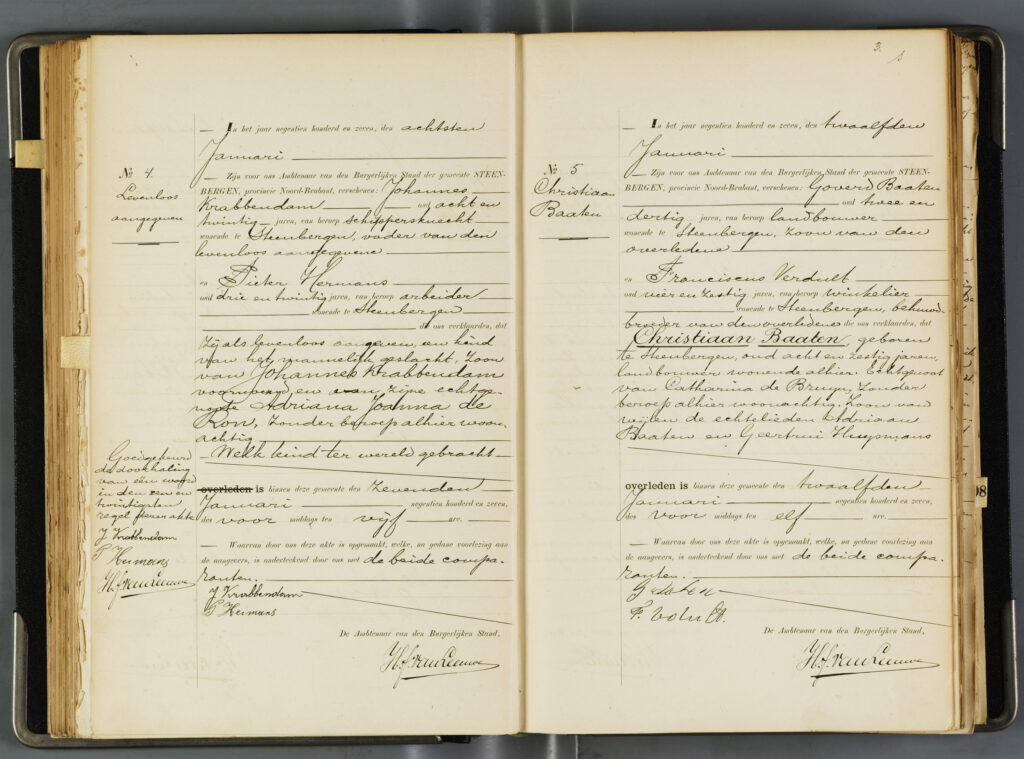 No 4.
Levenloos
aangegeven
In het jaar negentien honderd en zeven, den achtsten
Januari
Zijn voor ons Ambtenaar van den Burgerlijken Stand der gemeente STEEN-
BERGEN, provincie Noord-Brabant, verschenen: Johannes
Krabbendam oud acht en
twintig jaren, van beroep schippersknecht
wonende te Steenbergen, vader van den
levenloos aangegevene
en Pieter Hermans
oud drie en twintig jaren, van beroep arbeider
wonende te Steenbergen
de ons verklaarden, dat
zij als levenloos aangeven, een kind
van het mannelijk geslacht. Zoon
van Johannes Krabbendam
voornoemd, en van zijne echtge-
noote Adriana Joanna de
Ron, zonder beroep alhier woon-
achtig
Welk kind ter wereld gebracht
overleden is binnen deze gemeente den zevenden
Januari negentien honderd en zeven,
des voor middags ten vijf ure.
Waarvan door ons deze akte is opgemaakt, welke, na gedane voorlezing aan
de aangevers, is onderteekend door ons met de beide compa-
ranten.
J Krabbendam
P Hermans
De Ambtenaar van den Burgerlijken Stand,
Goedgekeurd
de doorhaling
van één woord
in den zen en
twintigsten
regel dezer akte
J Krabbendam
P Hermans
3.
No 5
Christiaan
Baaten
In het jaar negentien honderd en zeven, den twaalfden
Januari
Zijn voor ons Ambtenaar van den Burgerlijken Stand der gemeente STEEN-
BERGEN, provincie Noord-Brabant, verschenen: Goverd Baaten
oud twee en
dertig jaren, van beroep landbouwer
wonende te Steenbergen, zoon van den
overledene
en Franciscus Verdult
oud vier en zestig jaren, van beroep winkelier
wonende te Steenbergen, behuwd-
broeder van den overledene die ons verklaarden, dat
Christiaan Baaten, geboren
te Steenbergen, oud acht en zestig jaren,
landbouwer wonende alhier. Echtgenoot
van Catharina de Bruyn, zonder
beroep alhier woonachtig. Zoon van
wijlen de echtelieden Adriaan
Baaten en Geertrui Huijsmans
overleden is binnen deze gemeente den twaalfden
Januari negentien honderd en zeven,
des voor middags ten elf ure.
Waarvan door ons deze akte is opgemaakt, welke, na gedane voorlezing aan
de aangevers, is onderteekend door ons met de beide compa-
ranten.
De Ambtenaar van den Burgerlijken Stand,